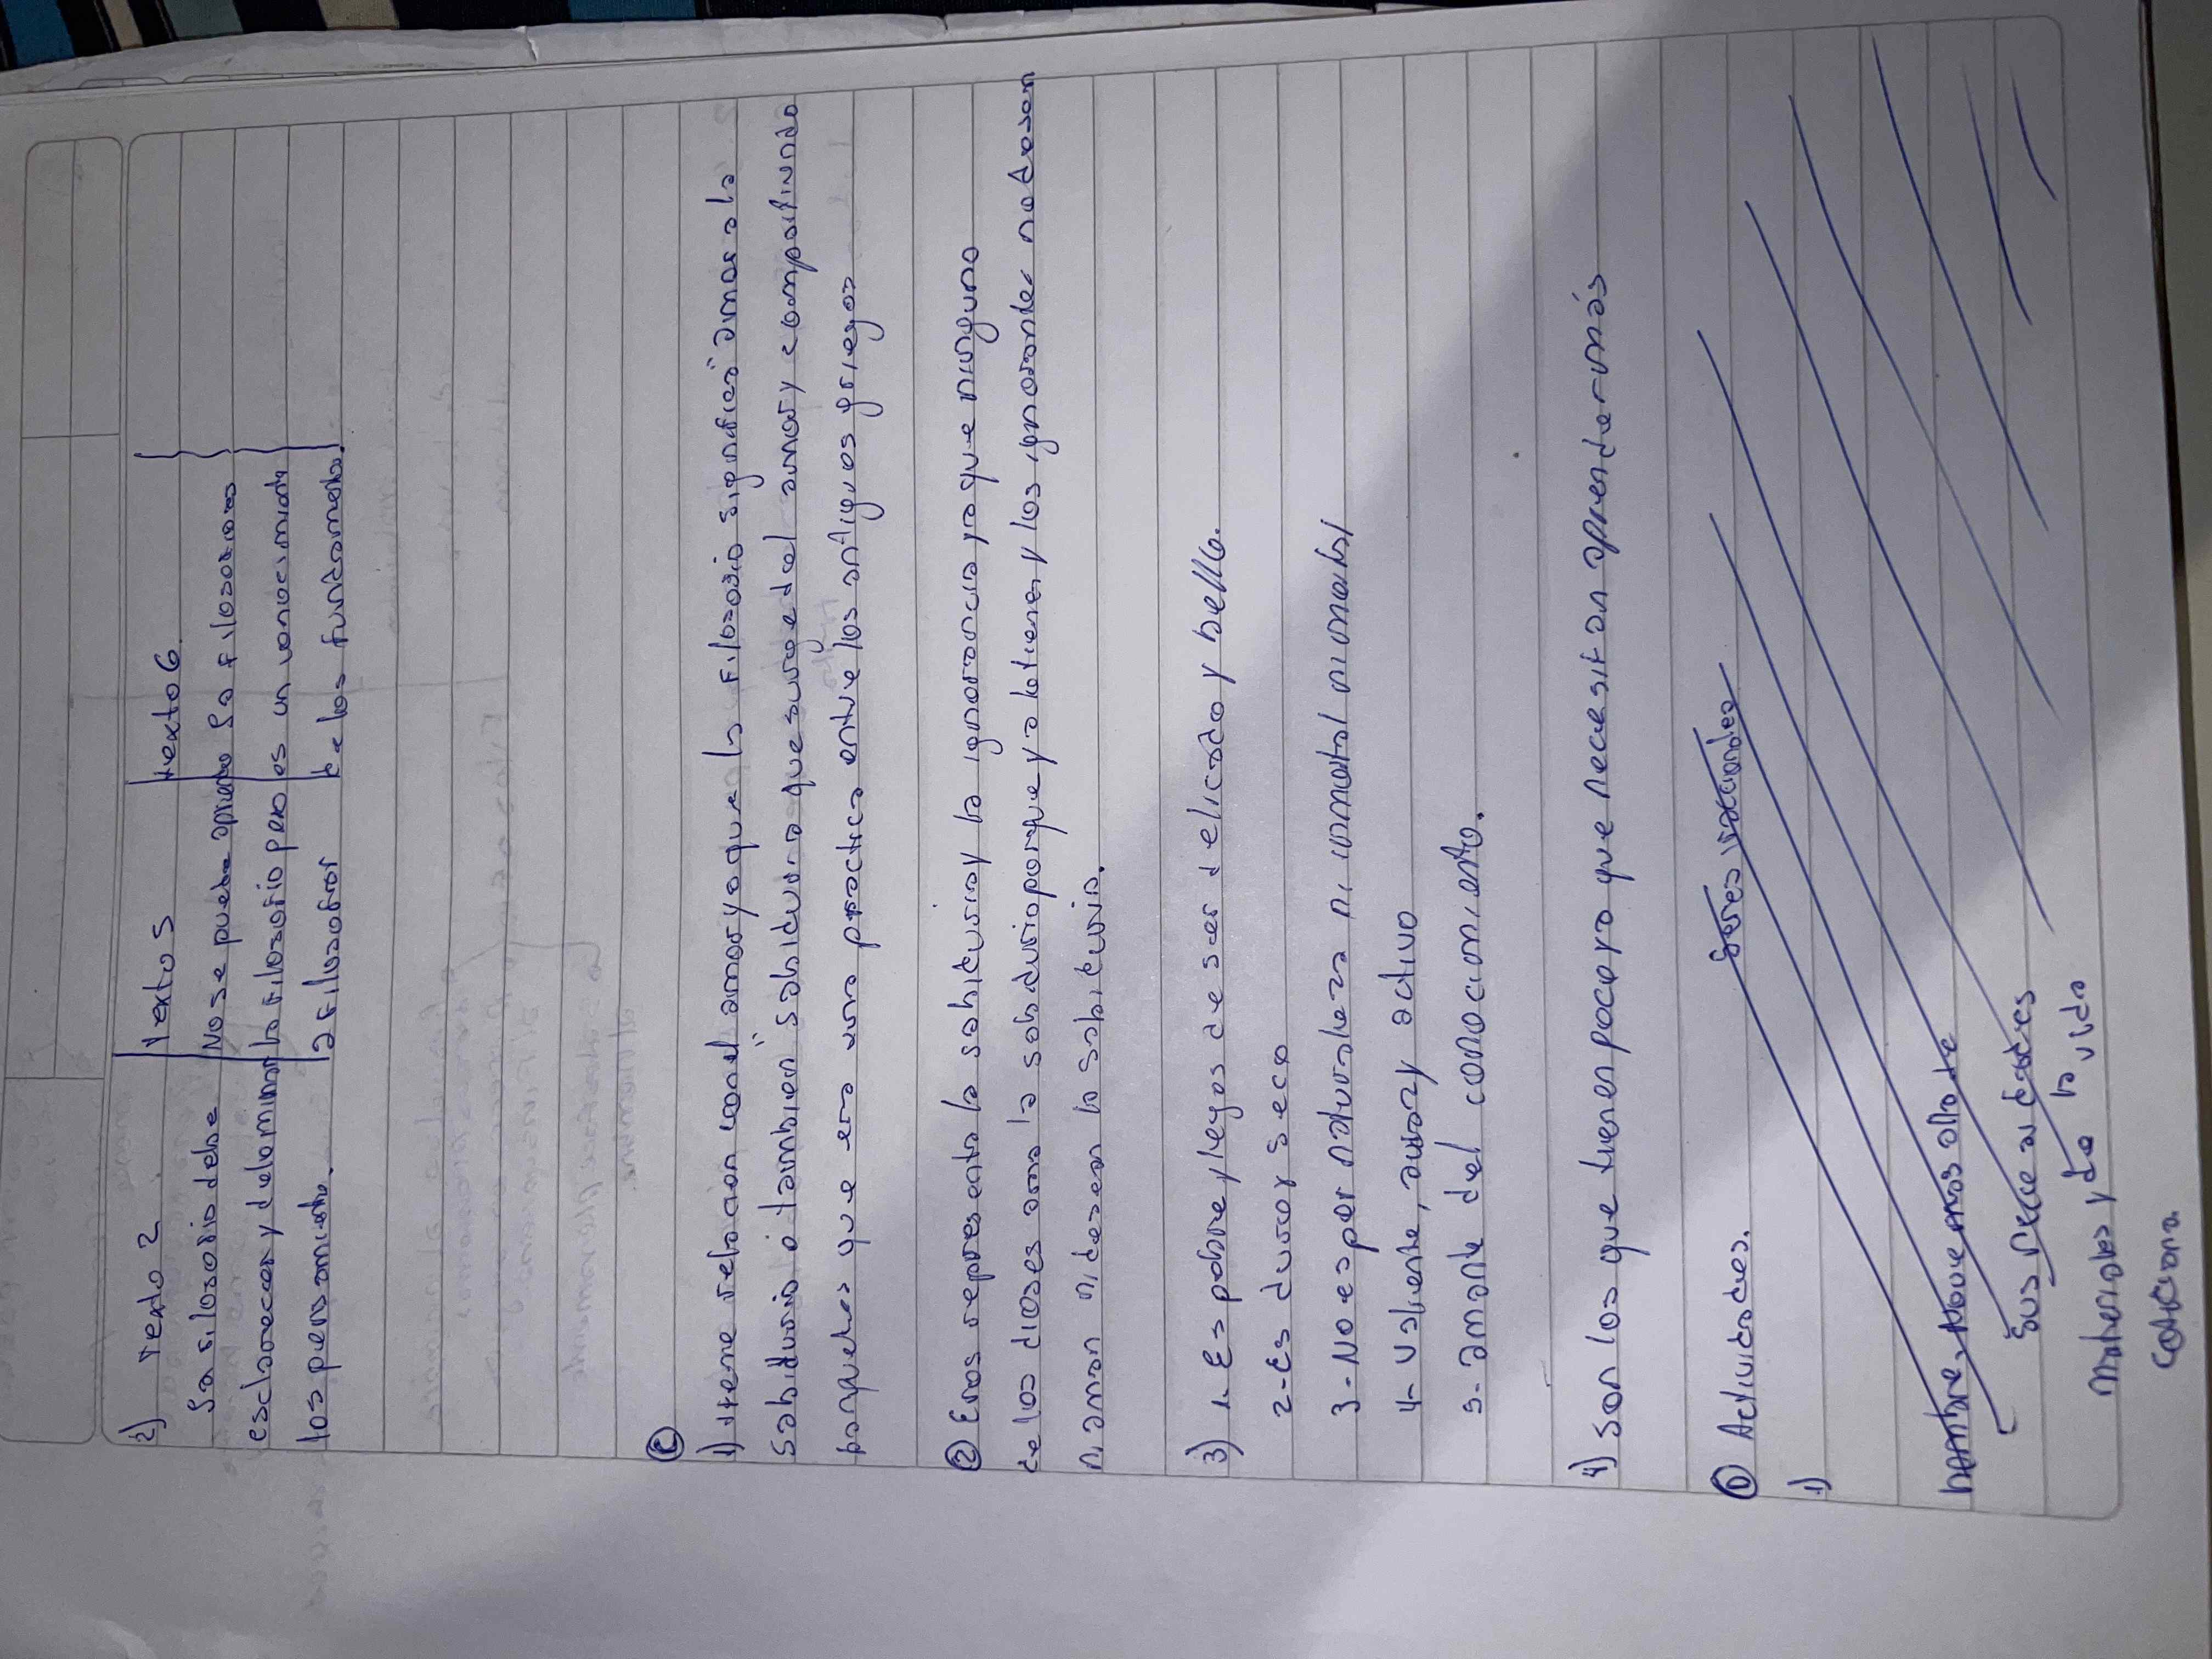 2) Texto 2 | Texto 5 | texto 6.
La filosofia debe | No se puede aprender | La filosofia
esclarecer y delominar | la filosofia pero | es un conocimiento
los pensamiento. | a filosofar | de los fundamentos.
C
1) tiene relacion con el amor ya que la filosofia significa "amor a la
sabiduria o tambien "sabiduria que surge del amor y compartiendo
banquetes que era una practica entre los antiguos griegos
2 Eros representa la sabiduria y la ignorancia ya que ninguno
de los dioses ama la sabiduria porque ya la tienen y los ignorantes no desean
ni aman ni desean la sabiduria.
3) 1. Es pobre y lejos de ser delicado y bello.
2- Es duro y seco
3- No es por naturaleza ni inmortal ni mortal
4- Valiente, audaz y activo
5- amante del conocimiento.
4) Son los que tienen poco pero que necesitan aprender más
D Actividades.
1) Seres racionales
hombre, mover mas alla de
sus necesidades
materiales y de la vida
cotidiana